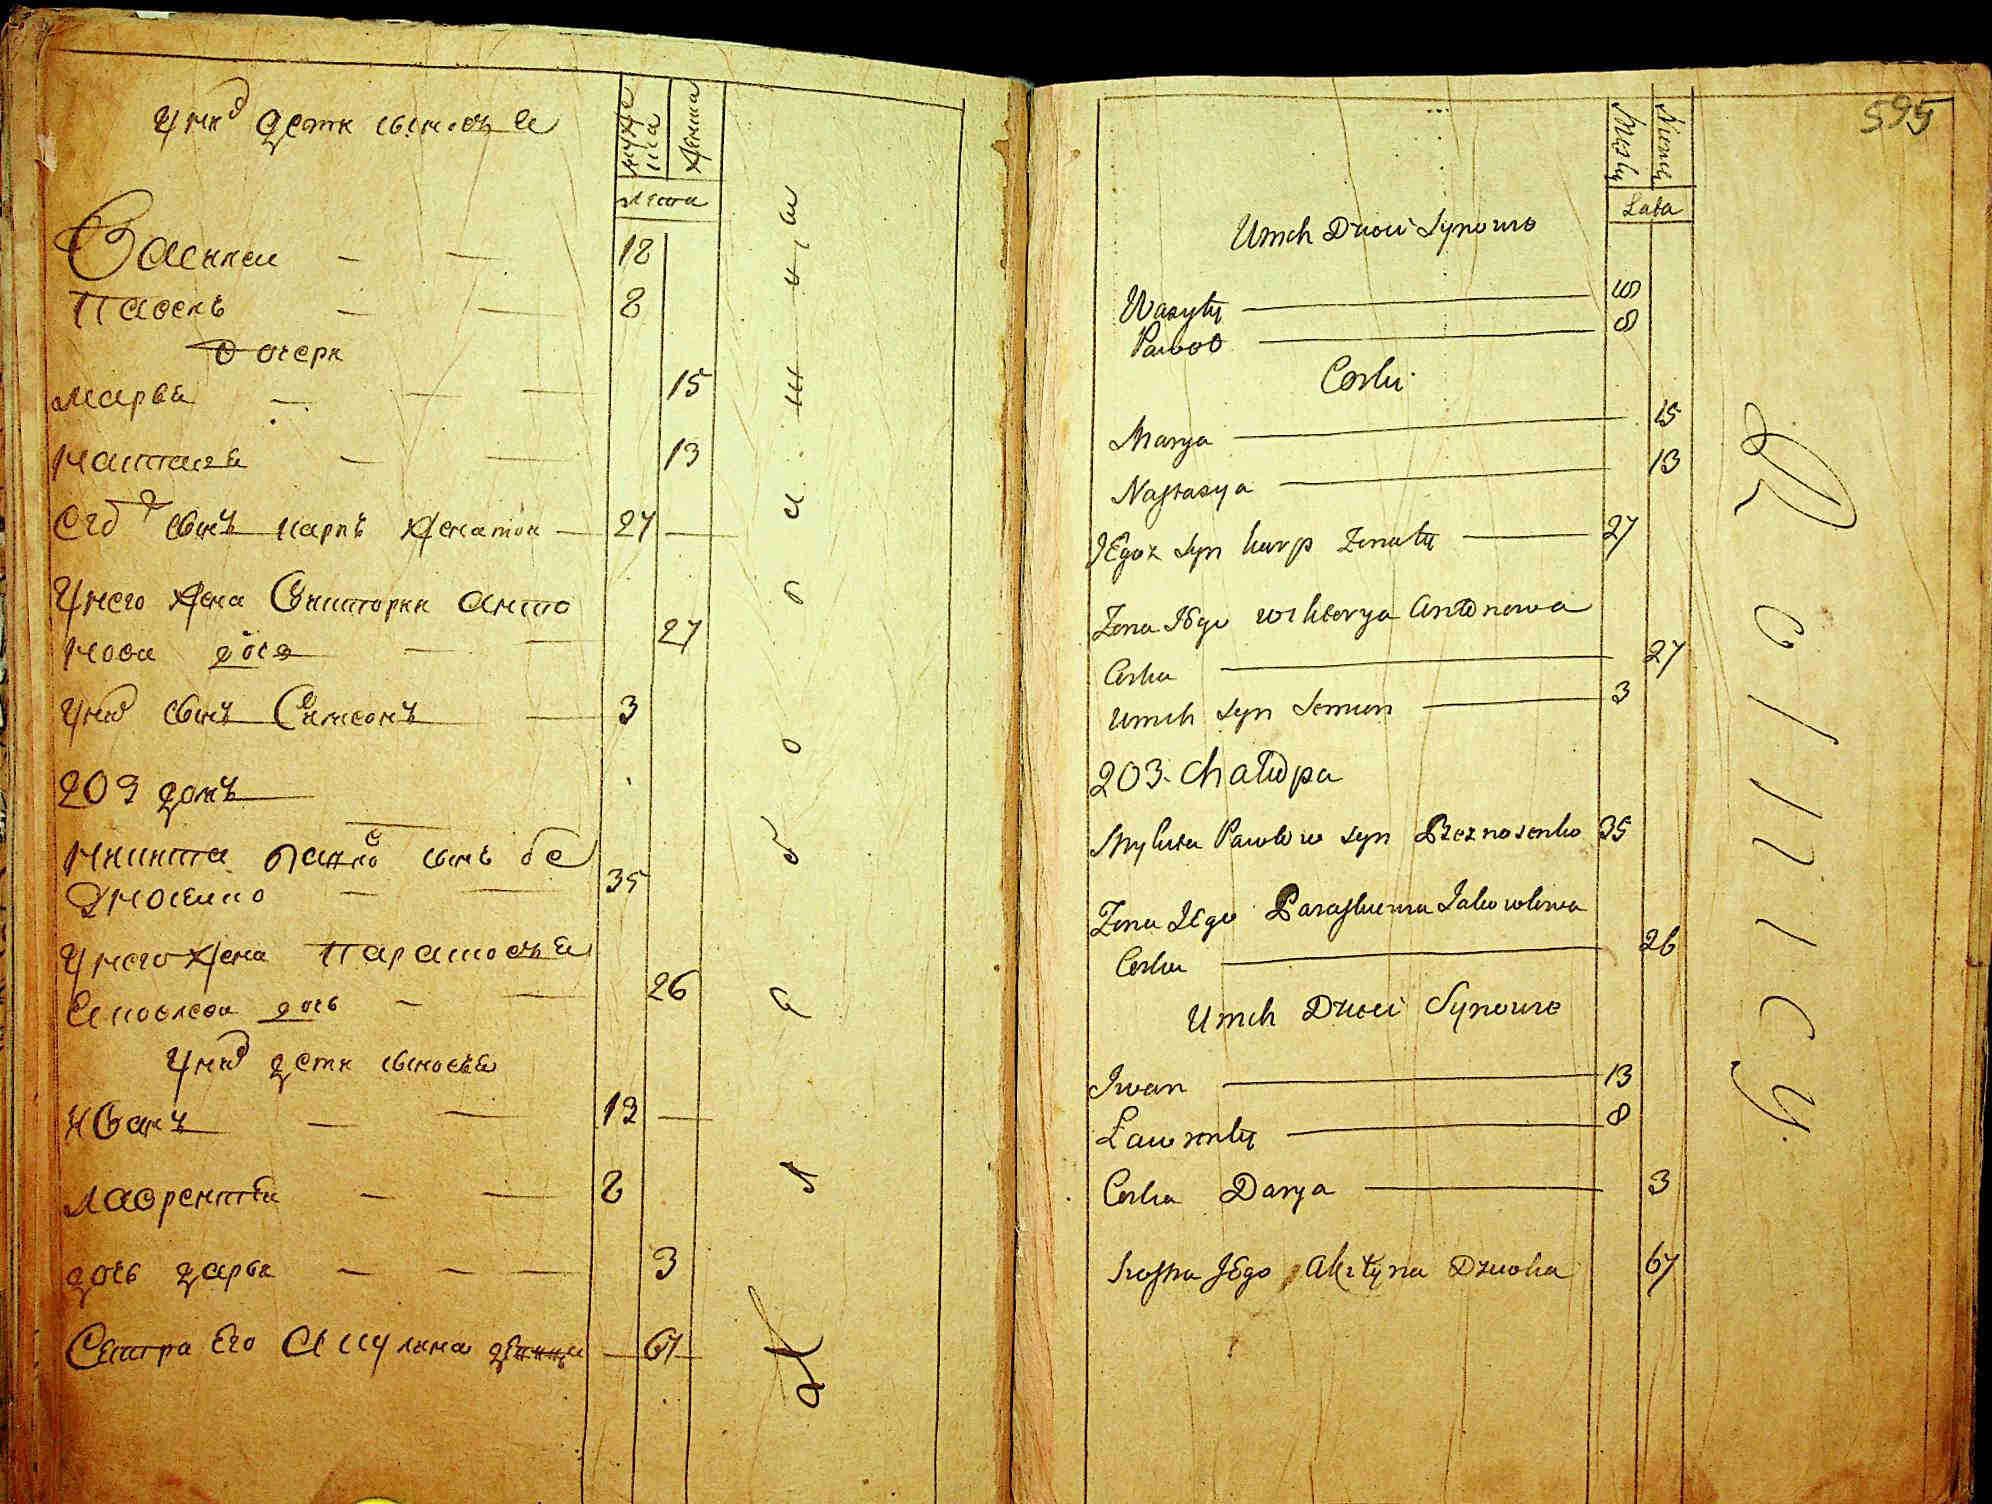 У них дѣти сыновья
мужеска
женска
лѣта
Василей — — 18
Павелъ — — 8
дочери
Марья — — — 15
Настасья — — 13
Его ж сынъ Карпъ женатой — 27
У него жена Викторья Анто
нова дочь — — 27
У них сынъ Симеонъ — 3
203 домъ
Никита Павловъ сынъ Бе
зносенко — — 35
У него жена Парасковья
Яковлева дочь — — 26
У них дѣти сыновья
Иванъ — — 13
Лаврентей — — 8
дочь Дарья — — — 3
Сестра Его Акулина девица — 67
595
Męski
Niewie
Lata
Umih Dzieci Synowie
Wasyły — 18
Paweł — 8
Corki
Marya — 15
Nastasya — 13
JEgoż Syn karp Żonaty — 27
Żona JEgo wikterya Antonowa
Corka — 27
Umih Syn Semion — 3
203. Chałupa
Mykita Pawłow Syn Bieznosenko 35
Żona JEgo Paraskiewia Jakowlewa
Corka — 26
Umih Dzieci Synowie
Jwan — 13
Ławrenty — 8
Corka Darya — 3
Siostra JEgo Akilyna Dziewka 67
Rolnicy